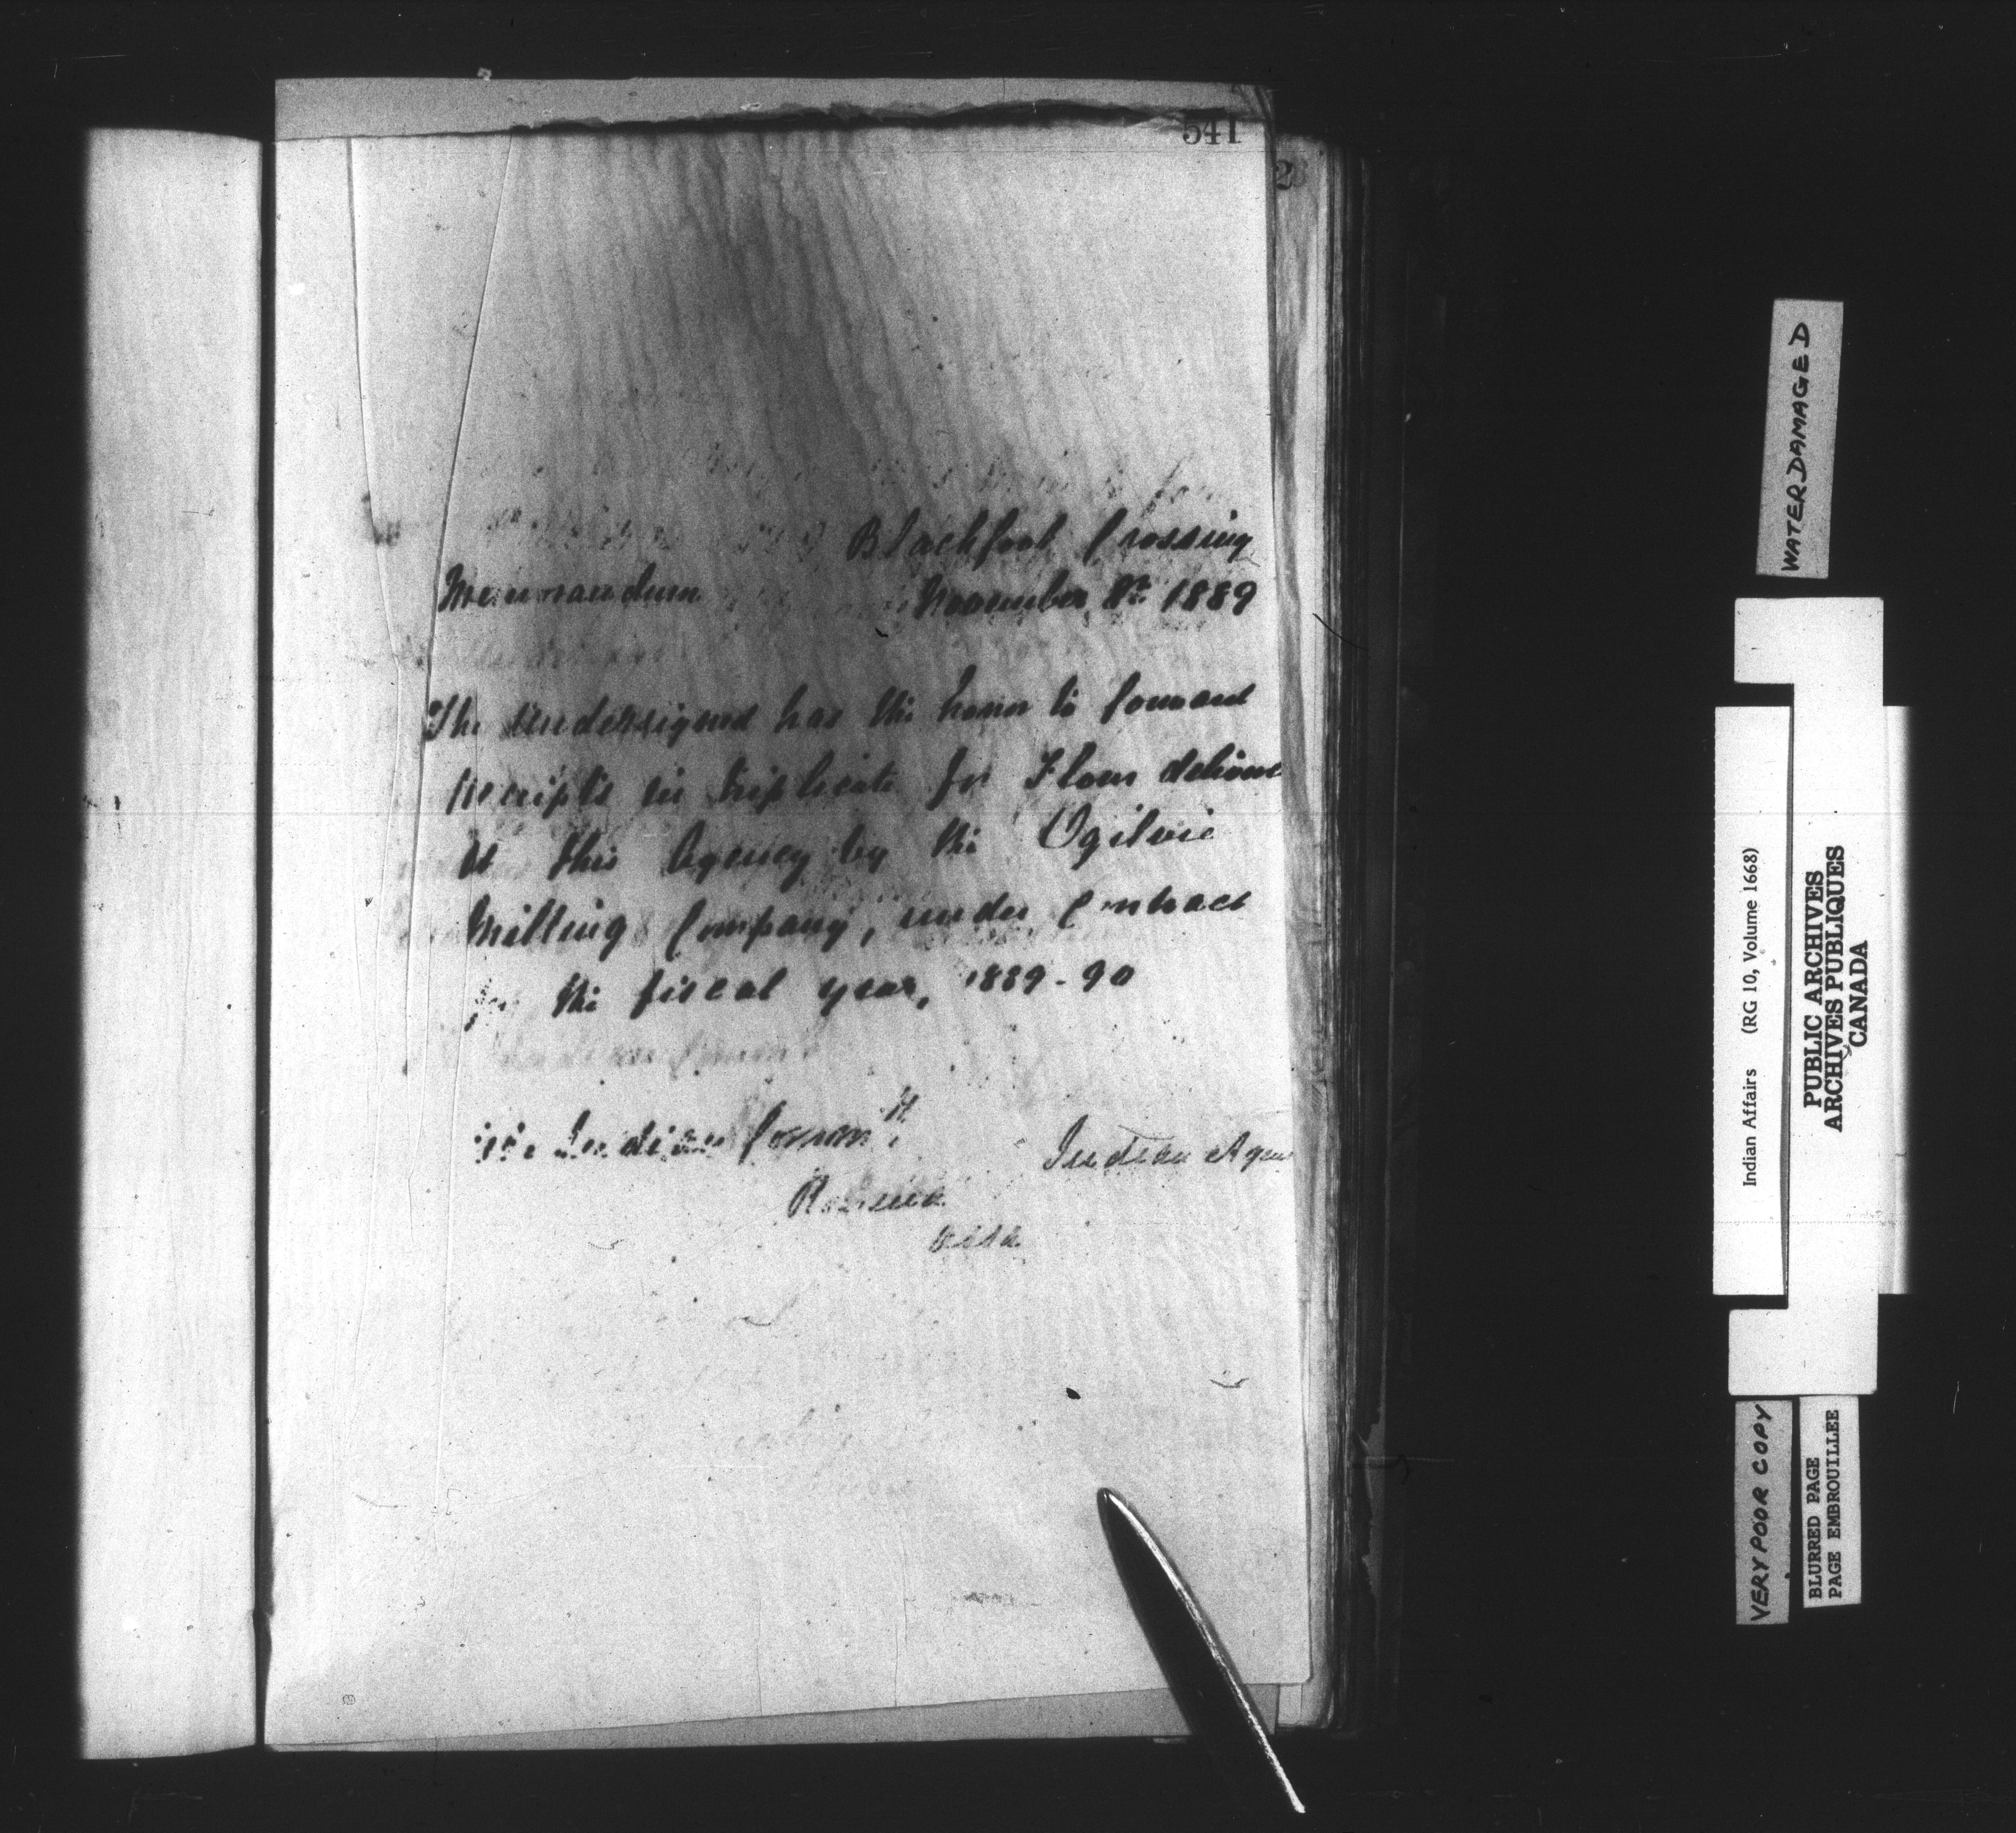 541
Blackfoot Crossing
Memorandum November 8th 1889
The undersigned has the honor to forward
receipts in triplicate for Flour delivere
at this Agency by the Ogilvie
Milling Company, under Contract
for the fiscal year, 1889-90
The Indian Commr
Indian Agen
Regina
Assa
WATERDAMAGED
Indian Affairs (RG 10, Volume 1668)
PUBLIC ARCHIVES
ARCHIVES PUBLIQUES
CANADA
VERY POOR COPY
BLURRED PAGE
PAGE EMBROUILLEE